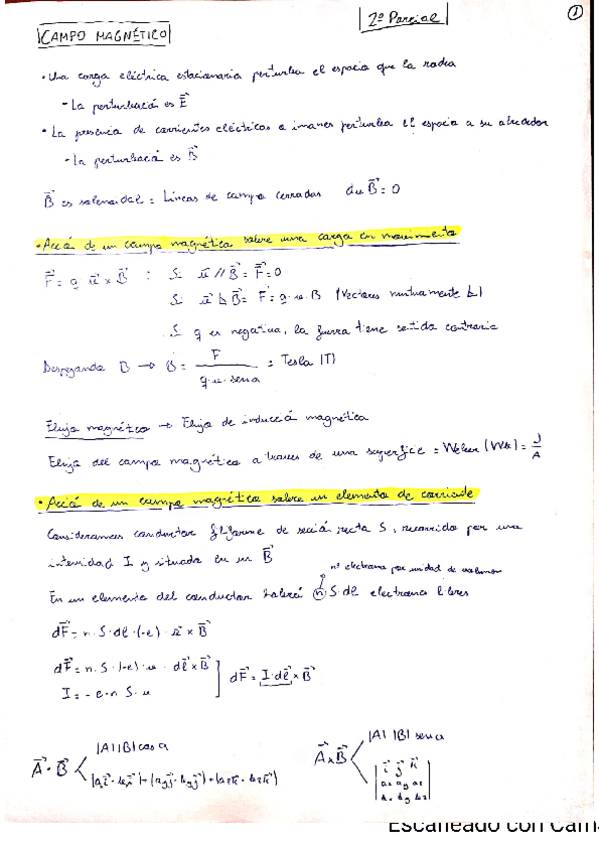 2º Parcial
1
CAMPO MAGNÉTICO
• Una carga eléctrica estacionaria perturba el espacio que la rodea
- La perturbación es E⃗
• La presencia de corrientes eléctricas o imanes perturba el espacio a su alrededor
- La perturbació es B⃗
B⃗ es solenoidal = Líneas de campo cerradas div B⃗ = 0
• Acció de un campo magnético sobre una carga en movimiento
F⃗ = q u⃗ × B⃗ : Si u⃗ // B⃗ = F⃗ = 0
Si u⃗ ⊥ B⃗ = F = q·u·B (Vectores mutuamente ⊥)
Si q es negativa, la fuerza tiene sentido contrario
Despejando B → B = F / q·u·sen α = Tesla (T)
Flujo magnético → Flujo de inducció magnética
Flujo del campo magnético a traves de una superficie = Weber (Wb) = J/A
• Acció de un campo magnético sobre un elemento de corriente
Consideramos conductor filiforme de seción recta S, recorrido por una
intensidad I y situado en un B⃗
nº electrones por unidad de volumen
En un elemento del conductor habrá n S·dl electrones libres
dF⃗ = n·S·dl·(-e)·u⃗ × B⃗
dF⃗ = n·S·(-e)·u·dl⃗ × B⃗
I = -e·n S·u
dF⃗ = I·dl⃗ × B⃗
A⃗·B⃗ < |A||B| cos α
(ax i⃗·bx i⃗)+(ay j⃗·by j⃗)+(az k⃗·bz k⃗)
A⃗×B⃗ < |A| |B| sen α
| i⃗ j⃗ k⃗ |
| ax ay az |
| bx by bz |
Escaneado con Cam